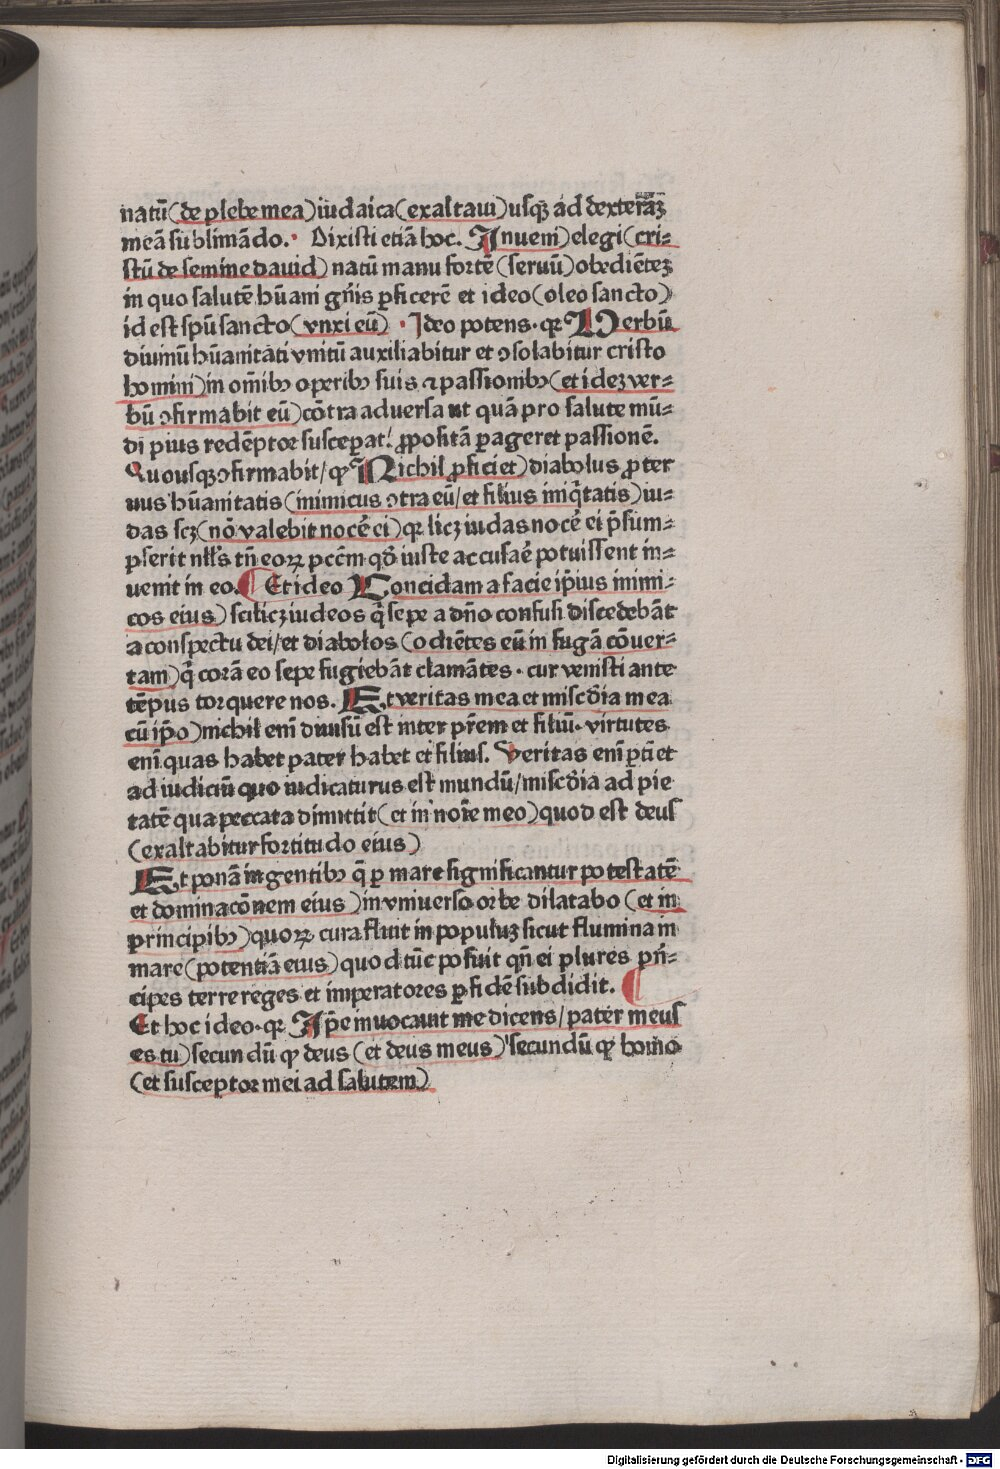 natū(de plebe mea)iudaica(exaltaui)usq̄ ad dexterāz
meā sublimādo. Dixisti etiā hoc. Inueni)elegi(cri-
stū de semine dauid) natū manu fortē(seruū)obediētez
in quo salutē hūani gn̄is ꝑficerē et ideo(oleo sancto)
id est spū sancto(vnxi eū) Ideo potens. qꝛ Uerbū
diuinū hūanitati vnitū auxiliabitur et ↄsolabitur cristo
homini)in om̄ibꝰ operibꝰ suis ⁊ passionibꝰ(et idez ver-
bū ↄfirmabit eū)cōtra aduersa ut quā pro salute mū-
di pius redēptor susceperat! ꝓpositā ꝑageret passionē.
Quousqꝫ ↄfirmabit/ qꝫ Nichil ꝓficiet)diabolus ꝓter
uus hūanitatis(inimicus ↄtra eū/et filius iniq̄tatis)iu-
das scz(nō valebit nocē ei)qꝛ licz iudas nocē ei p̄sum-
pserit nll's tn̄ eoꝝ pccm̄ qd̄ iuste accusaē potuissent in-
uenit in eo. Et ideo Concidam a facie ip̄ius inimi-
cos eius)scilicz iudeos q̄ sepe a dn̄o confusi discedebāt
a conspectu dei/et diabolos(odiētes eū in fugā cōuer-
tam)q̄ corā eo sepe fugiebāt clamātes. cur venisti ante
tēpus torquere nos. Et veritas mea et misc̄dia mea
cū ip̄o)nichil eni diuisū est inter pr̄em et filiū. virtutes
eni quas habet pater habet et filius. Veritas eni ꝑti et
ad iudiciū quo iudicaturus est mundū/misc̄dia ad pie
tatē qua peccata dimittit(et in noīe meo)quod est deus
(exaltabitur fortitudo eius)
Et ponā in gentibꝰ q̄ ꝑ mare significantur potestatē
et dominacōnem eius)in vniuerso orbe dilatabo(et in
principibꝰ)quoꝝ cura fluit in populuz sicut flumina in
mare(potentiā eius)quod tūc posuit qn̄ ei plures pri-
cipes terre reges et imperatores ꝑ fidē subdidit.
Et hoc ideo. qꝛ Ip̄e inuocauit me dicens/pater meus
es tu)secundū qꝫ deus(et deus meus)secundū qꝫ homo
(et susceptor mei ad salutem)
Digitalisierung gefördert durch die Deutsche Forschungsgemeinschaft - DFG